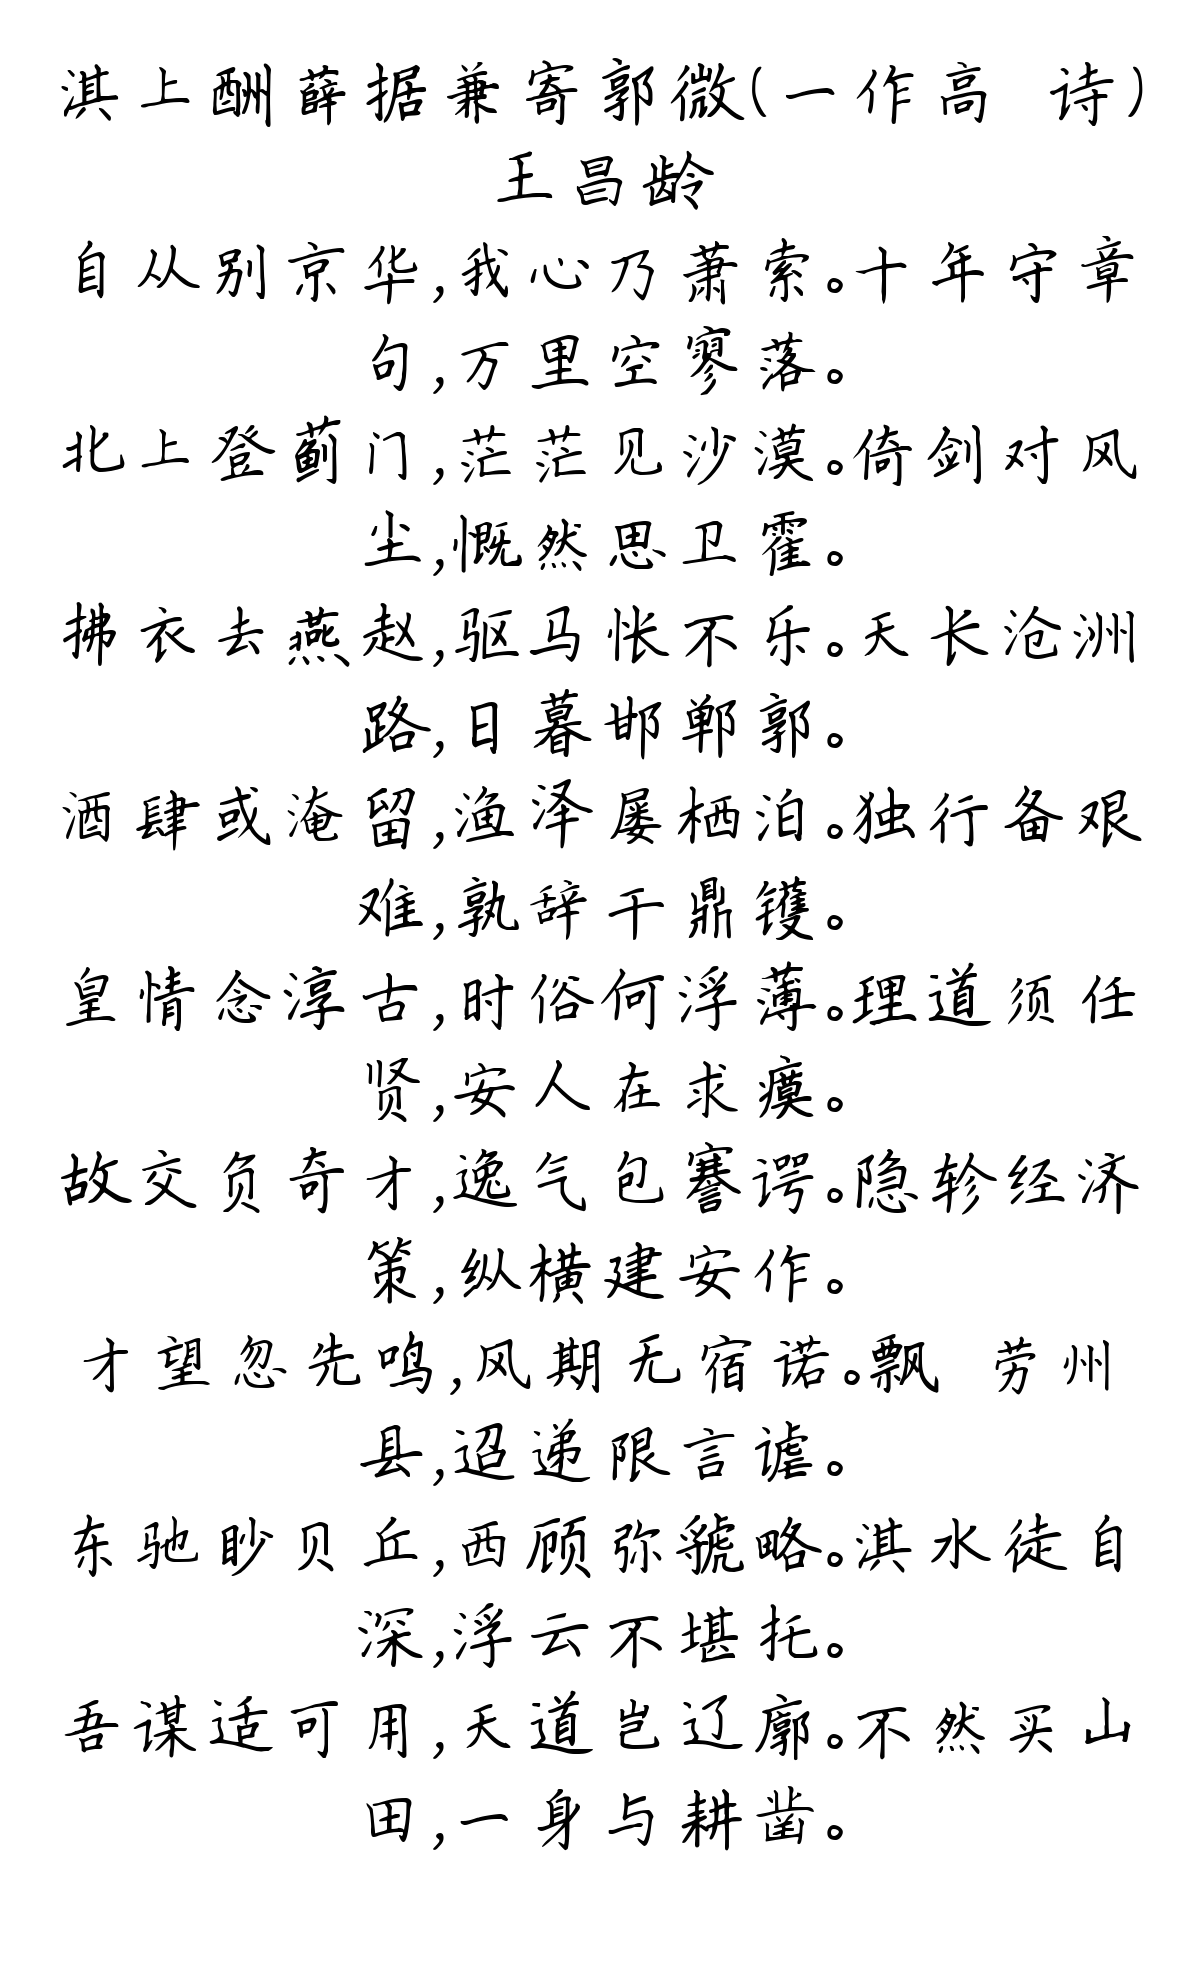 淇上酬薛据兼寄郭微(一作高 诗)
王昌龄
自从别京华,我心乃萧索。十年守章
句,万里空寥落。
北上登蓟门,茫茫见沙漠。倚剑对风
尘,慨然思卫霍。
拂衣去燕赵,驱马怅不乐。天长沧洲
路,日暮邯郸郭。
酒肆或淹留,渔泽屡栖泊。独行备艰
难,孰辞干鼎镬。
皇情念淳古,时俗何浮薄。理道须任
贤,安人在求瘼。
故交负奇才,逸气包謇谔。隐轸经济
策,纵横建安作。
才望忽先鸣,风期无宿诺。飘 劳州
县,迢递限言谑。
东驰眇贝丘,西顾弥虢略。淇水徒自
深,浮云不堪托。
吾谋适可用,天道岂辽廓。不然买山
田,一身与耕凿。